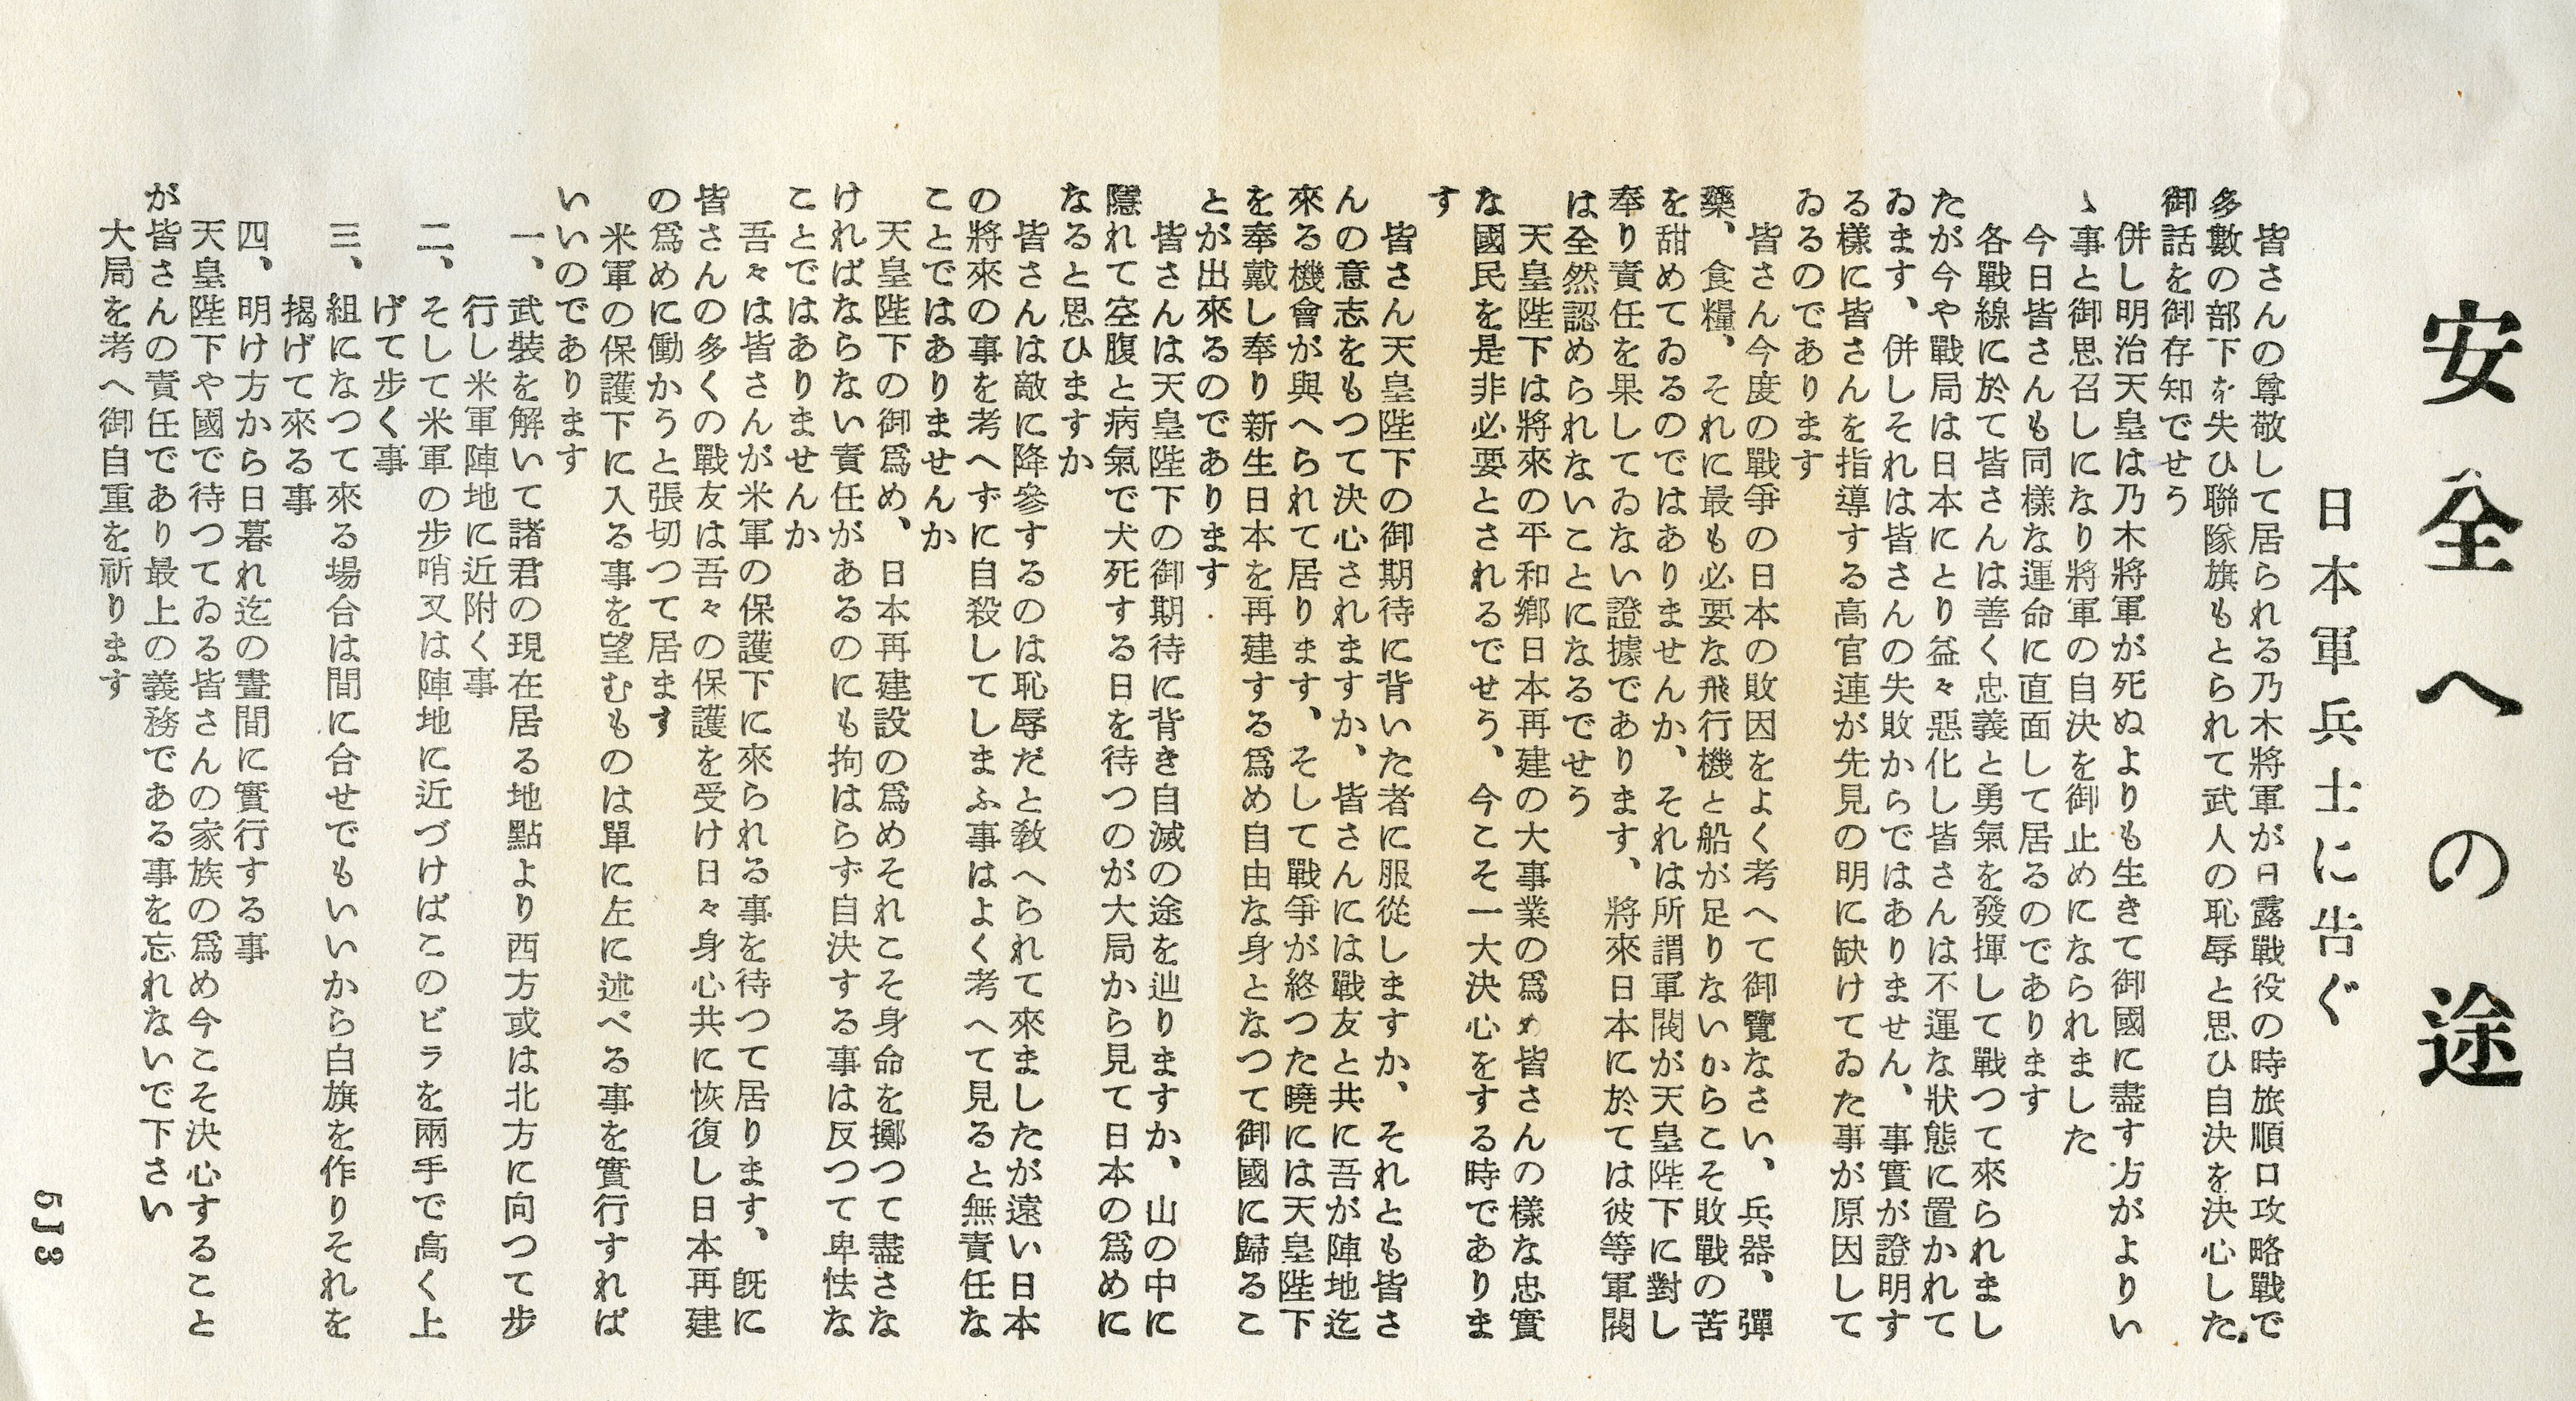 安全への途
日本軍兵士に告ぐ
皆さんの尊敬して居られる乃木將軍が日露戰役の時旅順口攻略戰で
多數の部下を失ひ聯隊旗もとられて武人の恥辱と思ひ自決を決心した
御話を御存知でせう
併し明治天皇は乃木將軍が死ぬよりも生きて御國に盡す方がよりい
ゝ事と御思召しになり將軍の自決を御止めになられました
今日皆さんも同樣な運命に直面して居るのであります
各戰線に於て皆さんは善く忠義と勇氣を發揮して戰つて來られまし
たが今や戰局は日本にとり益々惡化し皆さんは不運な狀態に置かれて
ゐます、併しそれは皆さんの失敗からではありません、事實が證明す
る樣に皆さんを指導する高官連が先見の明に缺けてゐた事が原因して
ゐるのであります
皆さん今度の戰爭の日本の敗因をよく考へて御覽なさい、兵器、彈
藥、食糧、それに最も必要な飛行機と船が足りないからこそ敗戰の苦
を甜めてゐるのではありませんか、それは所謂軍閥が天皇陛下に對し
奉り責任を果してゐない證據であります、將來日本に於ては彼等軍閥
は全然認められないことになるでせう
天皇陛下は將來の平和鄕日本再建の大事業の爲め皆さんの樣な忠實
な國民を是非必要とされるでせう、今こそ一大決心をする時でありま
す
皆さん天皇陛下の御期待に背いた者に服從しますか、それとも皆さ
んの意志をもつて決心されますか、皆さんには戰友と共に吾が陣地迄
來る機會が與へられて居ります、そして戰爭が終つた曉には天皇陛下
を奉戴し奉り新生日本を再建する爲め自由な身となつて御國に歸るこ
とが出來るのであります
皆さんは天皇陛下の御期待に背き自滅の途を辿りますか、山の中に
隱れて空腹と病氣で犬死する日を待つのが大局から見て日本の爲めに
なると思ひますか
皆さんは敵に降參するのは恥辱だと敎へられて來ましたが遠い日本
の將來の事を考へずに自殺してしまふ事はよく考へて見ると無責任な
ことではありませんか
天皇陛下の御爲め、日本再建設の爲めそれこそ身命を擲つて盡さな
ければならない責任があるのにも拘はらず自決する事は反つて卑怯な
ことではありませんか
吾々は皆さんが米軍の保護下に來られる事を待つて居ります、旣に
皆さんの多くの戰友は吾々の保護を受け日々身心共に恢復し日本再建
の爲めに働かうと張切つて居ます
米軍の保護下に入る事を望むものは單に左に述べる事を實行すれば
いいのであります
一、武裝を解いて諸君の現在居る地點より西方或は北方に向つて步
行し米軍陣地に近附く事
二、そして米軍の步哨又は陣地に近づけばこのビラを兩手で高く上
げて步く事
三、組になつて來る場合は間に合せでもいいから白旗を作りそれを
揭げて來る事
四、明け方から日暮れ迄の晝間に實行する事
天皇陛下や國で待つてゐる皆さんの家族の爲め今こそ決心すること
が皆さんの責任であり最上の義務である事を忘れないで下さい
大局を考へ御自重を祈ります
5J3